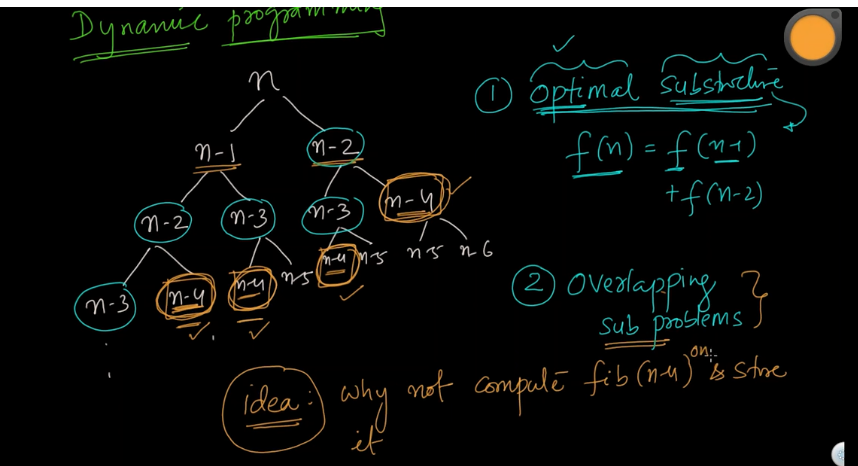 Dynamic programming
n
n-1
n-2
n-2
n-3
n-3
n-4
n-3
n-4
n-4
n-5
n-4
n-5
n-5
n-6
① optimal substructure
f(n) = f(n-1)
+ f(n-2)
② overlapping
sub problems
idea: why not compute fib(n-4) & store
it